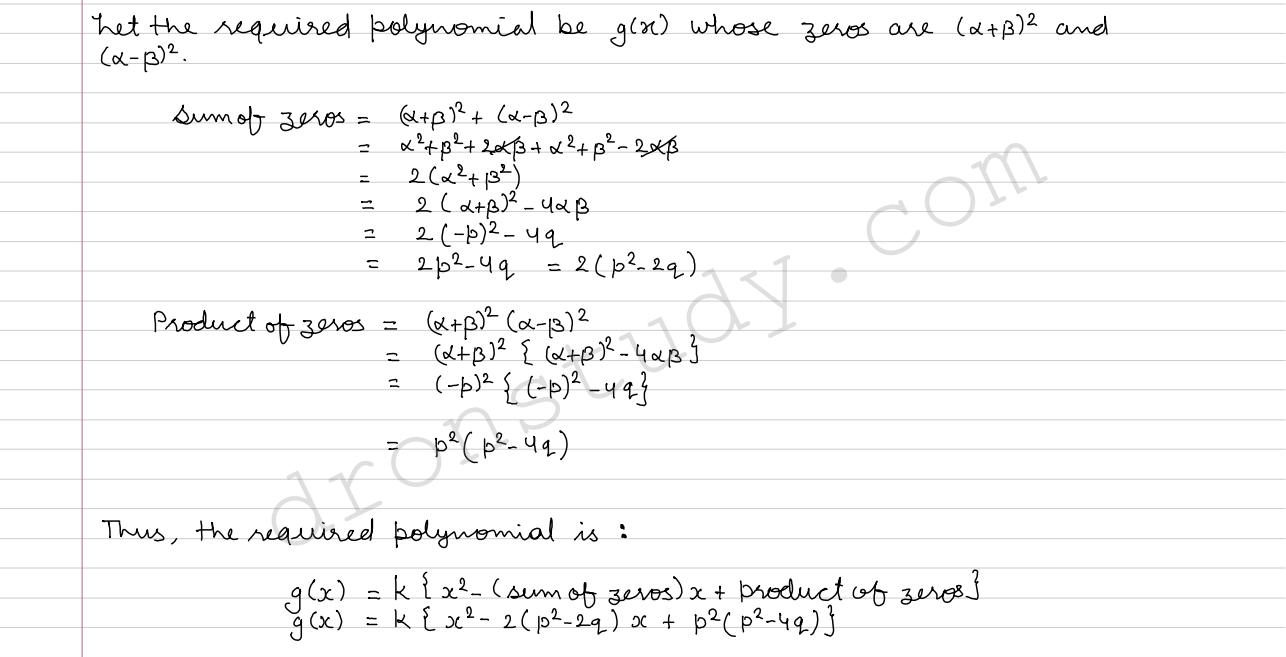 Let the required polynomial be g(x) whose zeros are (α+β)² and
(α-β)².
Sum of zeros = (α+β)² + (α-β)²
= α²+β²+2αβ+α²+β²-2αβ
= 2(α²+β²)
= 2(α+β)²-4αβ
= 2(-p)²-4q
= 2p²-4q = 2(p²-2q)
Product of zeros = (α+β)² (α-β)²
= (α+β)² { (α+β)²-4αβ}
= (-p)² { (-p)²-4q}
= p²(p²-4q)
Thus, the required polynomial is :
g(x) = k { x²-(sum of zeros)x + product of zeros}
g(x) = k { x²-2(p²-2q) x + p²(p²-4q)}
dronstudy.com